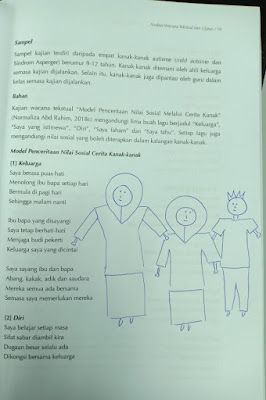 Analisis Wacana Tekstual dan Ujaran / 19
Sampel
Sampel kajian terdiri daripada empat kanak-kanak autisme (mild autisme dan
Sindrom Asperger) berumur 9-12 tahun. Kanak-kanak ditemani oleh ahli keluarga
semasa kajian dijalankan. Selain itu, kanak-kanak juga dipantau oleh guru dalam
kelas semasa kajian dijalankan.
Bahan
Kajian wacana tekstual "Model Penceritaan Nilai Sosial Melalui Cerita Kanak-kanak"
(Normaliza Abd Rahim, 2018c) mengandungi lima buah lagu berjudul "Keluarga",
"Saya yang istimewa", "Diri", "Saya faham" dan "Saya tahu". Setiap lagu juga
mengandungi nilai sosial yang boleh diterapkan dalam kalangan kanak-kanak.
Model Penceritaan Nilai Sosial Cerita Kanak-kanak
[1] Keluarga
Saya berasa puas hati
Menolong ibu bapa setiap hari
Bermula di pagi hari
Sehingga malam nanti
Ibu bapa yang disayangi
Saya tetap berhati-hati
Menjaga budi pekerti
Keluarga saya yang dicintai
Saya sayang ibu dan bapa
Abang, kakak, adik dan saudara
Mereka semua ada bersama
Semasa saya memerlukan mereka
[2] Diri
Saya belajar setiap masa
Sifat sabar diambil kira
Dugaan besar selalu ada
Dikongsi bersama keluarga